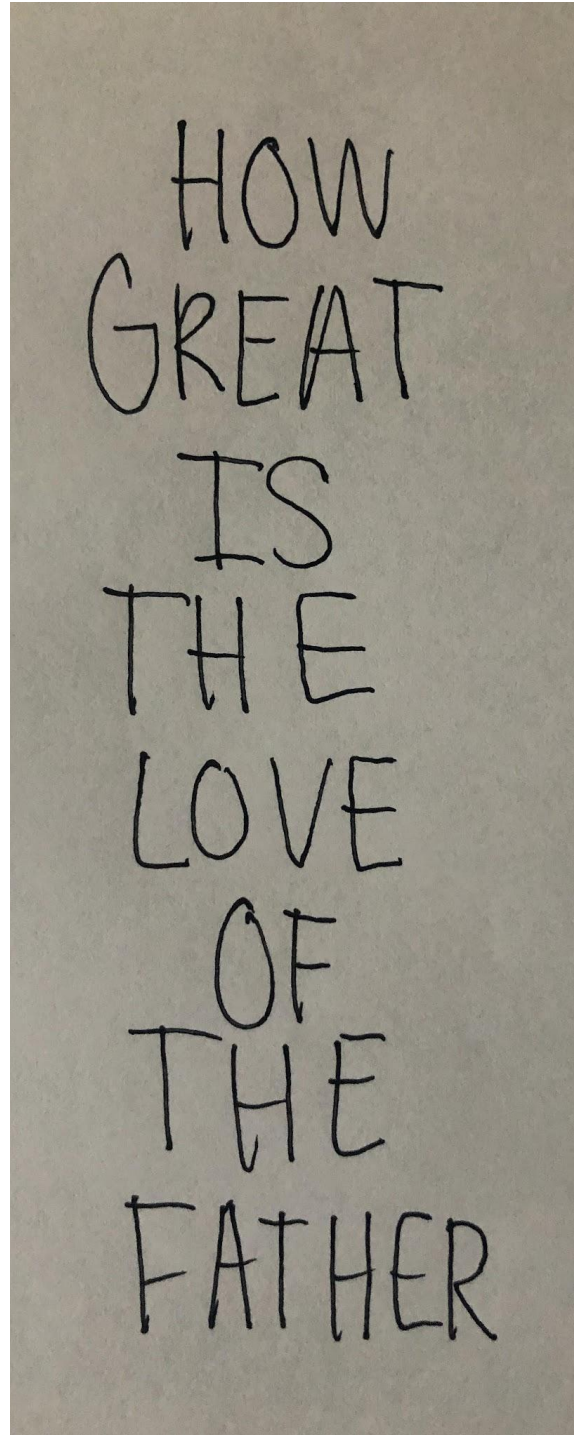 HOW
GREAT
IS
THE
LOVE
OF
THE
FATHER